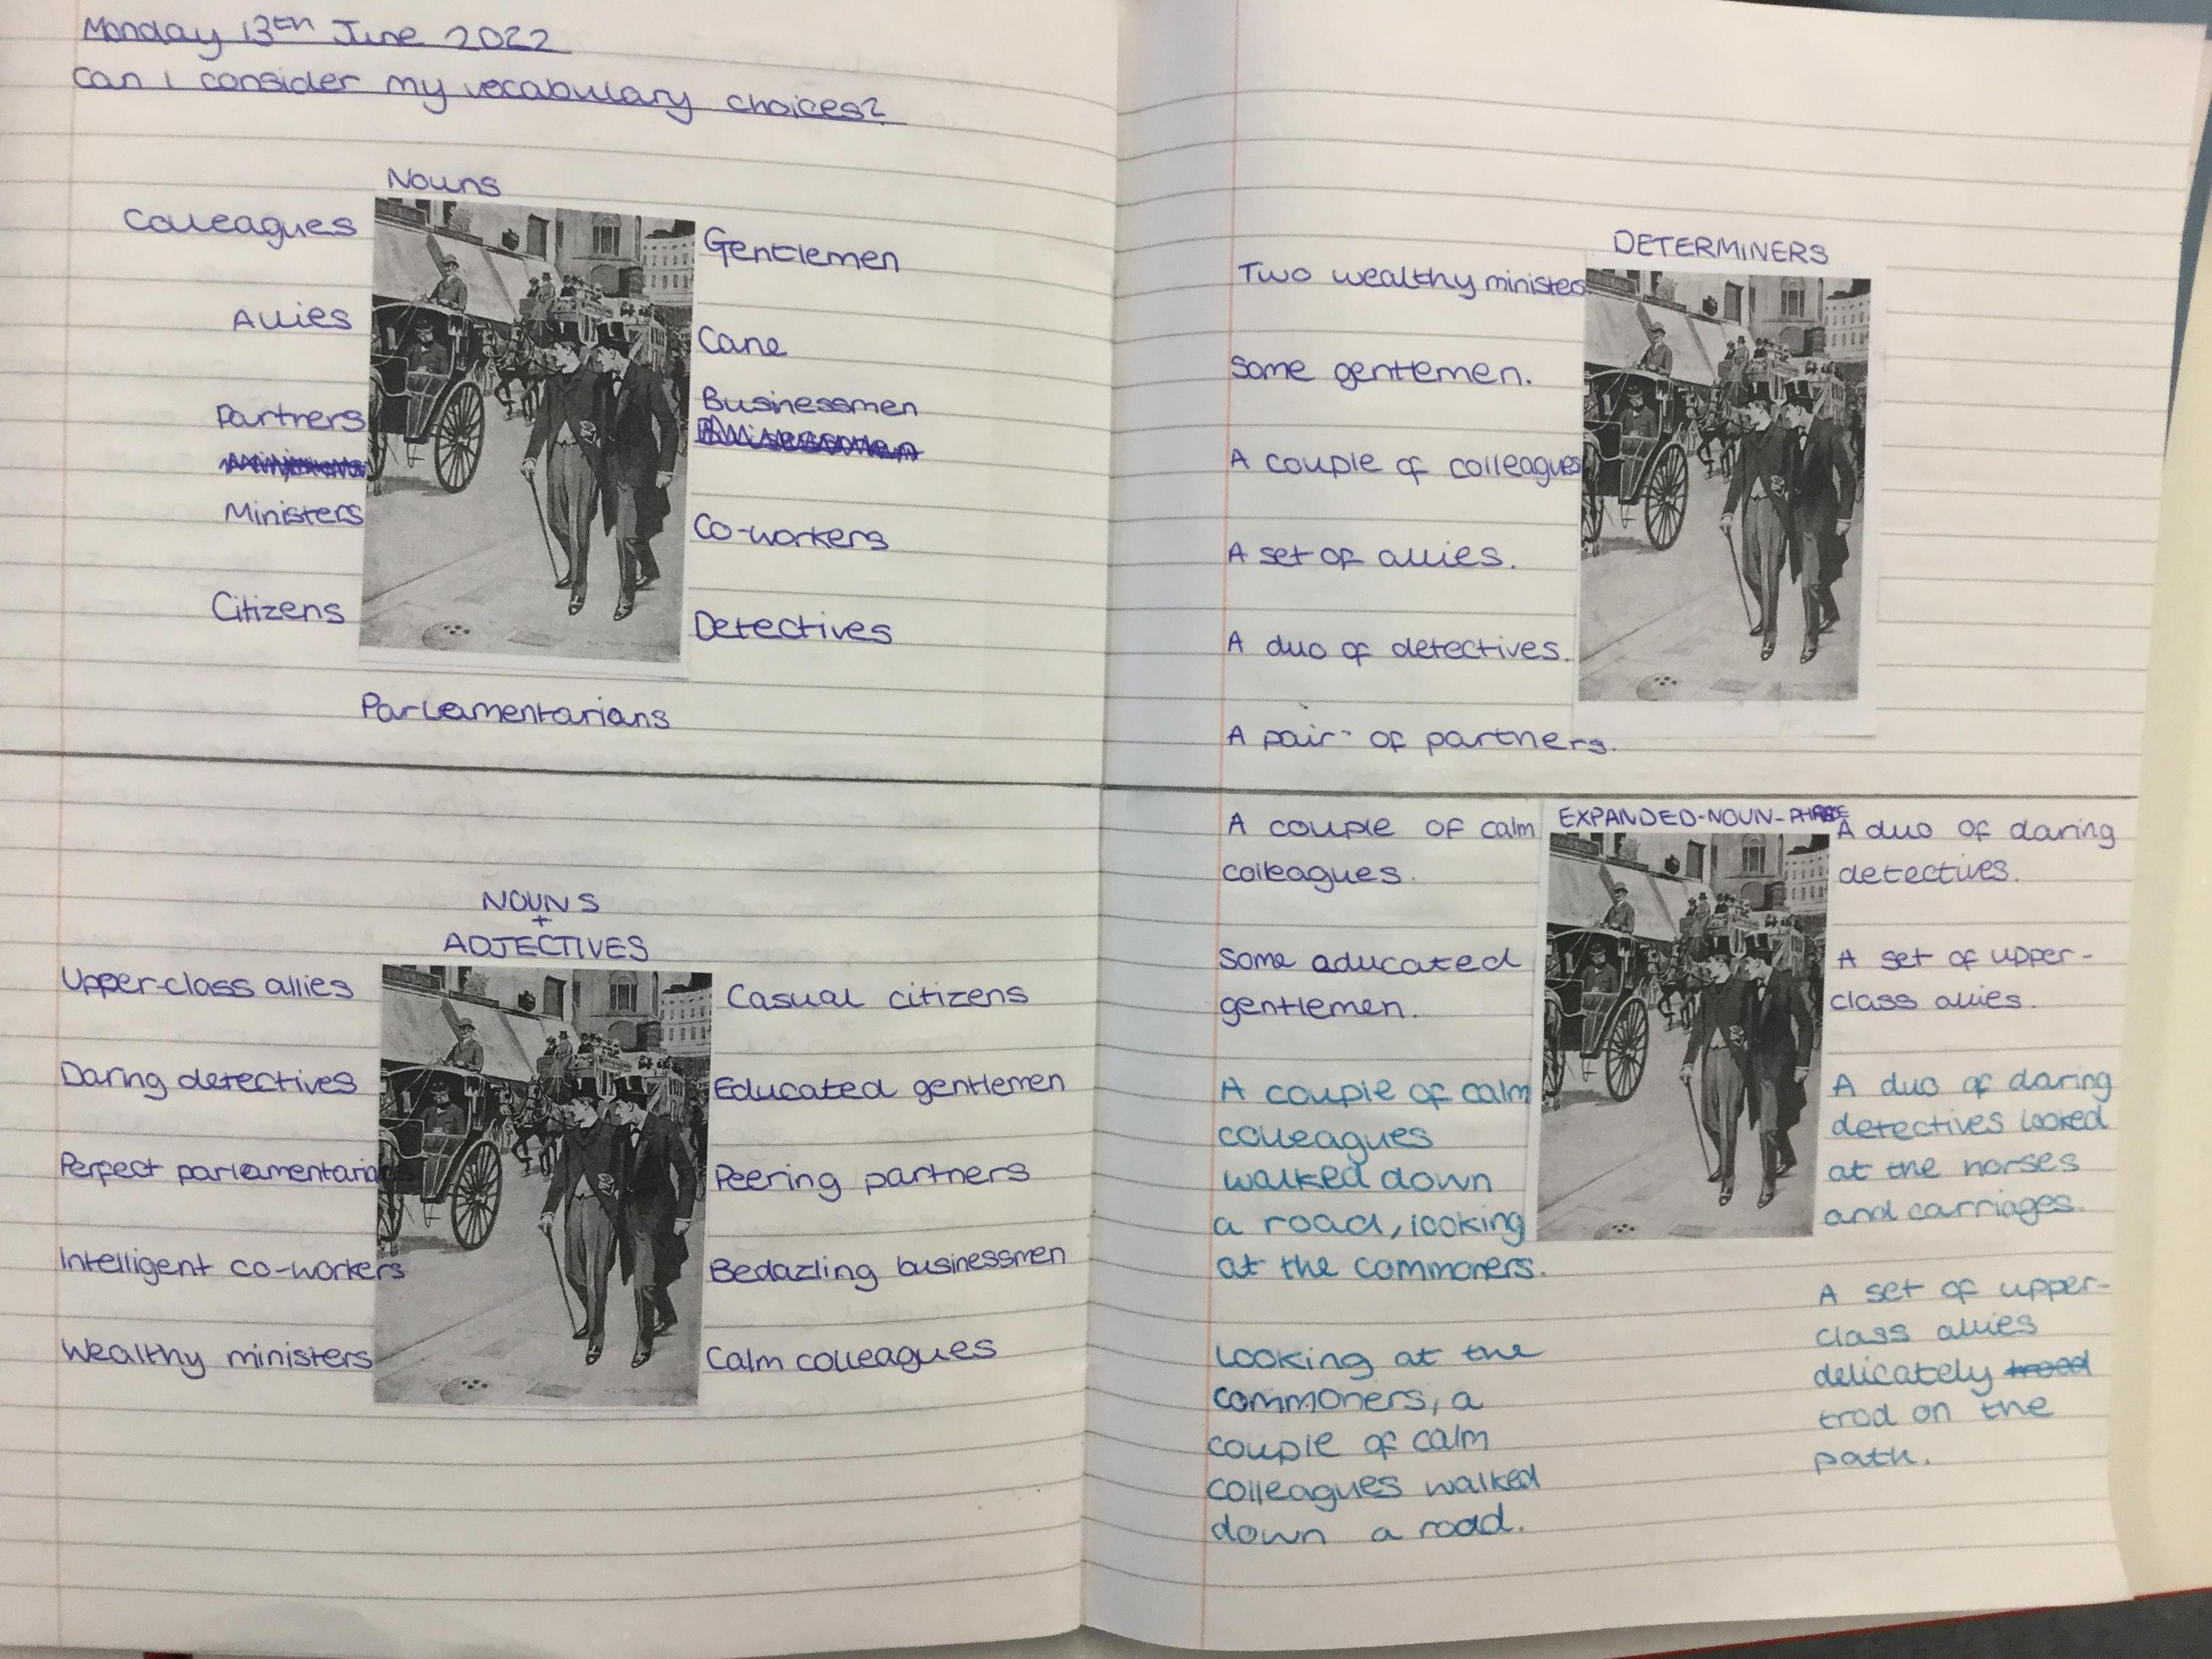 Monday 13th June 2022
Can I consider my vocabulary choices?
Nouns
Colleagues
Allies
Partners
Ministers
Citizens
Gentlemen
Cane
Businessmen
Co-workers
Detectives
Parliamentarians
NOUNS
+
ADJECTIVES
Upper-class allies
Daring detectives
Perfect parliamentarians
Intelligent co-workers
Wealthy ministers
Casual citizens
Educated gentlemen
Peering partners
Bedazling businessmen
Calm colleagues
DETERMINERS
Two wealthy ministers
Some gentlemen.
A couple of colleagues
A set of allies.
A duo of detectives.
A pair of partners.
EXPANDED-NOUN-PHRASE
A couple of calm
colleagues.
Some aducated
gentlemen.
A couple of calm
colleagues
walked down
a road, looking
at the commoners.
Looking at the
commoners, a
couple of calm
colleagues walked
down a road.
A duo of daring
detectives.
A set of upper-
class allies.
A duo of daring
detectives looked
at the horses
and carriages.
A set of upper-
class allies
delicately
trod on the
path.